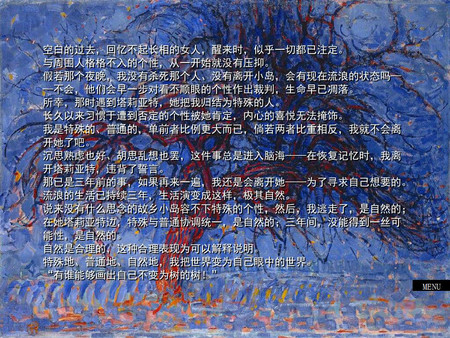 空白的过去，回忆不起长相的女人，醒来时，似乎一切都已注定。
与周围人格格不入的个性，从一开始就没有压抑。
假若那个夜晚，我没有杀死那个人、没有离开小岛，会有现在流浪的状态吗——
——不会，他们会早一步对看不顺眼的个性作出裁判，生命早已凋落。
所幸，那时遇到塔莉亚特，她把我归结为特殊的人。
长久以来习惯于遭到否定的个性被她肯定，内心的喜悦无法掩饰。
我是特殊的、普通的，单前者比例更大而已，倘若两者比重相反，我就不会离
开她了吧。
沉思熟虑也好、胡思乱想也罢，这件事总是进入脑海——在恢复记忆时，我离
开塔莉亚特，违背了誓言。
那已是三年前的事，如果再来一遍，我还是会离开她——为了寻求自己想要的。
流浪的生活已持续三年，生活演变成这样，极其自然。
说来没有什么思念的故乡小岛容不下特殊的个性，然后，我逃走了，是自然的；
在她塔莉亚特边，特殊与普通协调统一，是自然的；三年间，没能得到一丝可
能性，是自然的。
自然是合理的，这种合理表现为可以解释说明。
特殊地、普通地、自然地，我把世界变为自己眼中的世界。
“有谁能够画出自己不变为树的树！”
MENU